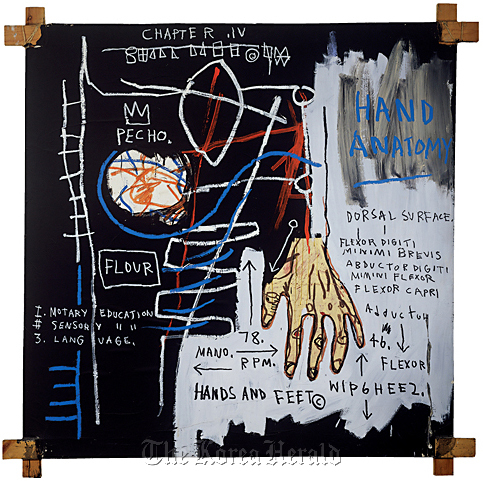 CHAPTER .IV
PECHO.
HAND
ANATOMY
DORSAL SURFACE,
FLEXOR DIGITI
MINIMI BREVIS
ABDUCTOR DIGITI
MIMINI FLEXOR
FLEXOR CAPRI
FLOUR
I. MOTARY EDUCATION
# SENSORY " "
3. LANGUAGE.
Adductor
78.
MANO.
RPM.
46.
FLEXOR
HANDS AND FEET©
WIP6HEEZ.
The Korea Herald